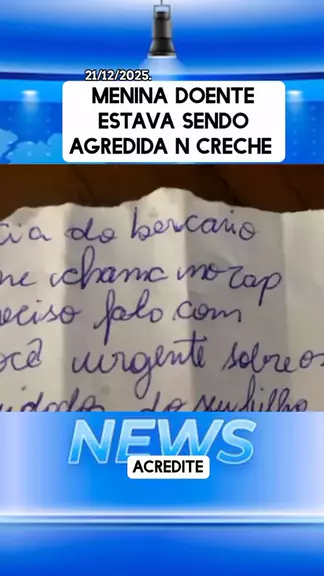 21/12/2025.
MENINA DOENTE
ESTAVA SENDO
AGREDIDA N CRECHE
do bercario
me chama no zap
preciso falo com
você urgente sobre os
do seu filho
NEWS
ACREDITE